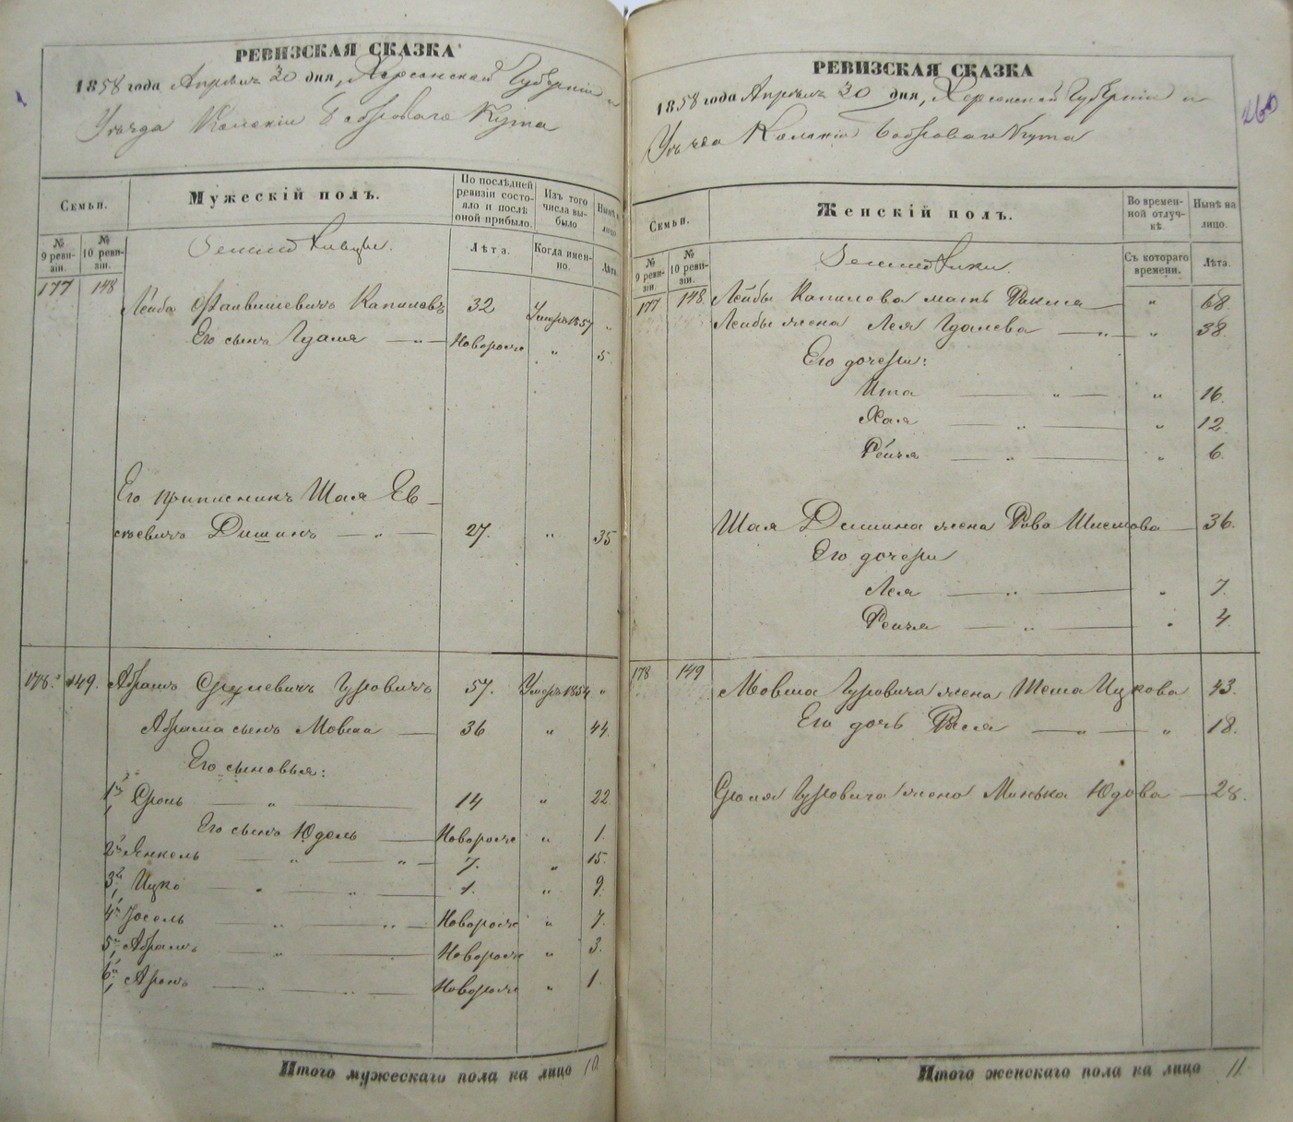 РЕВИЗСКАЯ СКАЗКА
1858 года Апреля 30 дня, Херсонской Губернии и
Уезда Колонии Боброваго Кута
Семьи.
Мужескій полъ.
По послѣдней ревизіи состояло и послѣ оной прибыло.
Изъ того числа выбыло
Нынѣ на лицо.
№ 9 ревизіи.
№ 10 ревизіи.
Земледѣльцы.
Лѣта.
Когда именно.
Лѣта
177 148
Лейба Файвишевичъ Капиловъ 32 Умеръ 1857 „
Его сынъ Гдаля — „ — Новорожд „ 5
Его приписникъ Шая Ев-
сѣевичъ Дишинъ — „ — 27. „ 35
178. 149. Абрамъ Срулевичъ Гуровичъ 57. Умеръ 1854 „
Абрама сынъ Мовша — 36 „ 44.
Его сыновья:
1й Сроль — „ — 14 „ 22
Его сынъ Юдель — Новорожд „ 1.
2й Янкель — „ — „ — 7. „ 15.
3й Ицко — „ — „ — 1. „ 9.
4й Іосель — „ — „ — Новорожд „ 7.
5й Абрамъ — „ — Новорожд „ 3.
6й Аронъ — „ — „ — Новорожд „ 1.
Итого мужескаго пола на лицо 10.
РЕВИЗСКАЯ СКАЗКА
260
1858 года Апреля 30 дня, Херсонской Губерніи и
Уезда Колоніи Боброваго Кута
Семьи.
Женскій полъ.
Во временной отлучкѣ.
Нынѣ на лицо.
№ 9 ревизіи.
№ 10 ревизіи.
Съ котораго времени.
Лѣта.
177 148 Лейбы Капилова мать Фикла — „ 68
Лейбы жена Лея Гдалева — „ — „ 38.
Его дочери:
Ита — „ — „ 16.
Хая — „ — „ 12.
Рейзя — „ — „ 6.
Шая Дишина жена Рива Шлемова — 36.
Его дочери
Лея — „ — „ 7.
Рейзя — „ — „ 4.
178 149
Мовша Гуровича жена Шема Ицкова 43.
Его дочь Рася — „ — „ 18.
Сроля Гуровича жена Минька Юдова — 28.
Итого женскаго пола на лицо 11